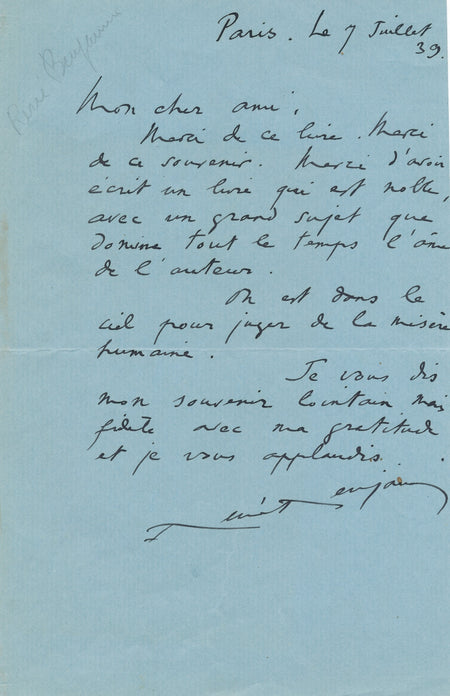 René Benjamin
Paris. Le 7 Juillet
39.
Mon cher ami,
Merci de ce livre. Merci
de ce souvenir. Merci d'avoir
écrit un livre qui est noble,
avec un grand sujet que
domine tout le temps l'âme
de l'auteur.
On est dans le
ciel pour juger de la misère
humaine.
Je vous dis
mon souvenir lointain mais
fidèle avec ma gratitude
et je vous applaudis.
René Benjamin